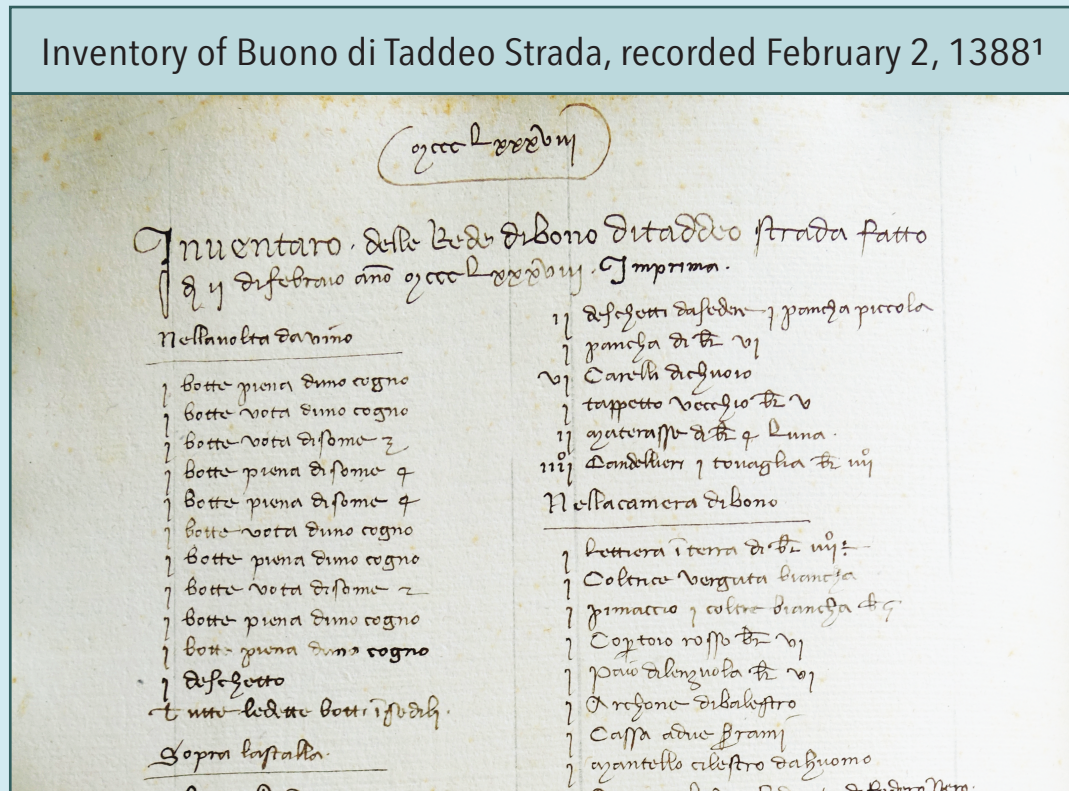 Inventory of Buono di Taddeo Strada, recorded February 2, 1388¹
mccc Lxxxviii
Inventaro · delle Rede dibono ditaddeo strada fatto
a ii difebraio año mccc Lxxxviii · Imprima ·
Nellavolta davino
j botte piena duno cogno
j botte vota duno cogno
j botte vota disome
j botte piena disome 4
j botte piena disome 4
j botte vota duno cogno
j botte piena duno cogno
j botte vota disome 2
j botte piena duno cogno
j botte piena duno cogno
j deschetto
tutte ledette botti isedili ·
Sopra lastalla ·
ij deschetti dasedere j pancha piccola
j pancha di br vi
vi Carelli dichuoio
j tappetto vecchio br v
ij materasse di br 4 Luna ·
iiij Candellieri j tovaglia br iiij
Nellacamera dibono
j Lettiera i terra di br iiij
j Coltrice vergata biancha
j pimaccio j coltre biancha br
j Coptoio rosso br vi
j Paio dilenzuola br vi
j Archone dibalestro
j Cassa adue
j mantello cilestro dahuomo